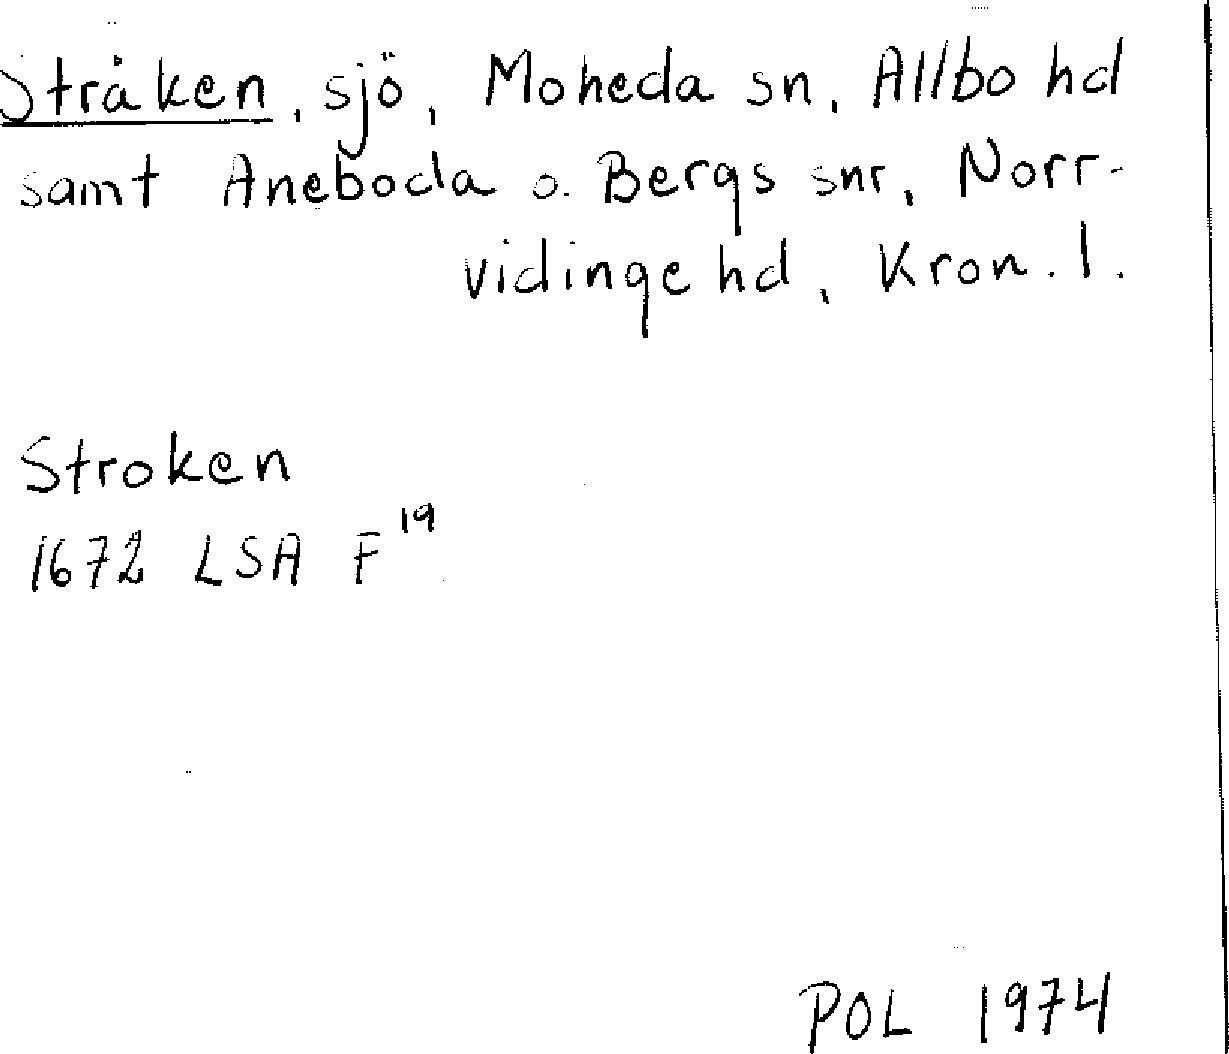 Stråken, sjö, Moheda sn, Allbo hd
samt Aneboda o. Bergs snr, Norr-
vidinge hd, Kron. l.
Stroken
1672 LSA F19
POL 1974